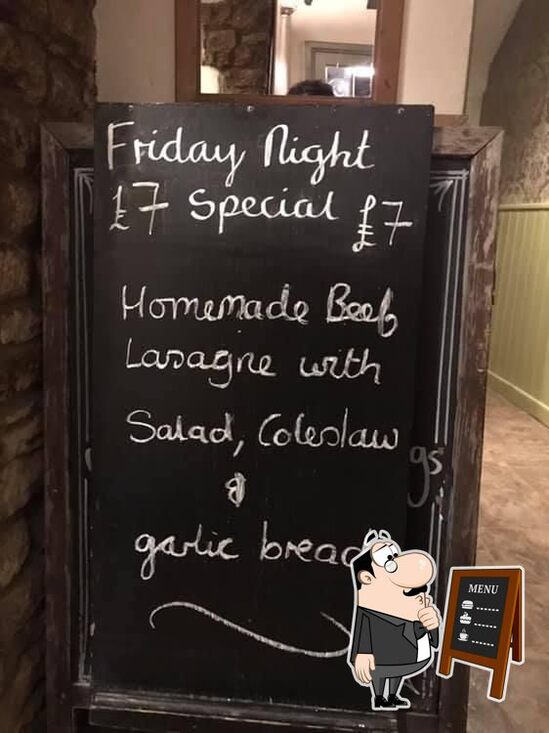 Friday Night
£7 Special £7
Homemade Beef
Lasagne with
Salad, Coleslaw
&
gs
garlic bread
MENU